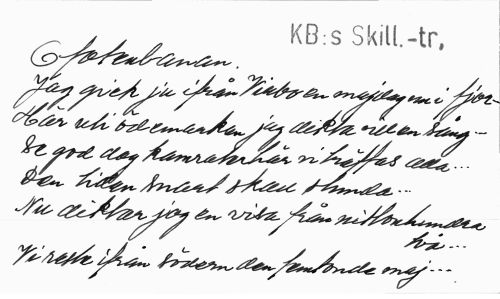 KB:s Skill.-tr,
Ofotenbanan.
Jag gick ju ifrån Vinbo en majdagen i fjor
Här uti ödemarken jag dikta vill en sång -
Se god dag kamrater här vi träffas ...
Den tiden snart skall stunda ...
Nu diktar jag en visa från nittonhundra
två ...
Vi reste ifrån södern den femtonde maj ...